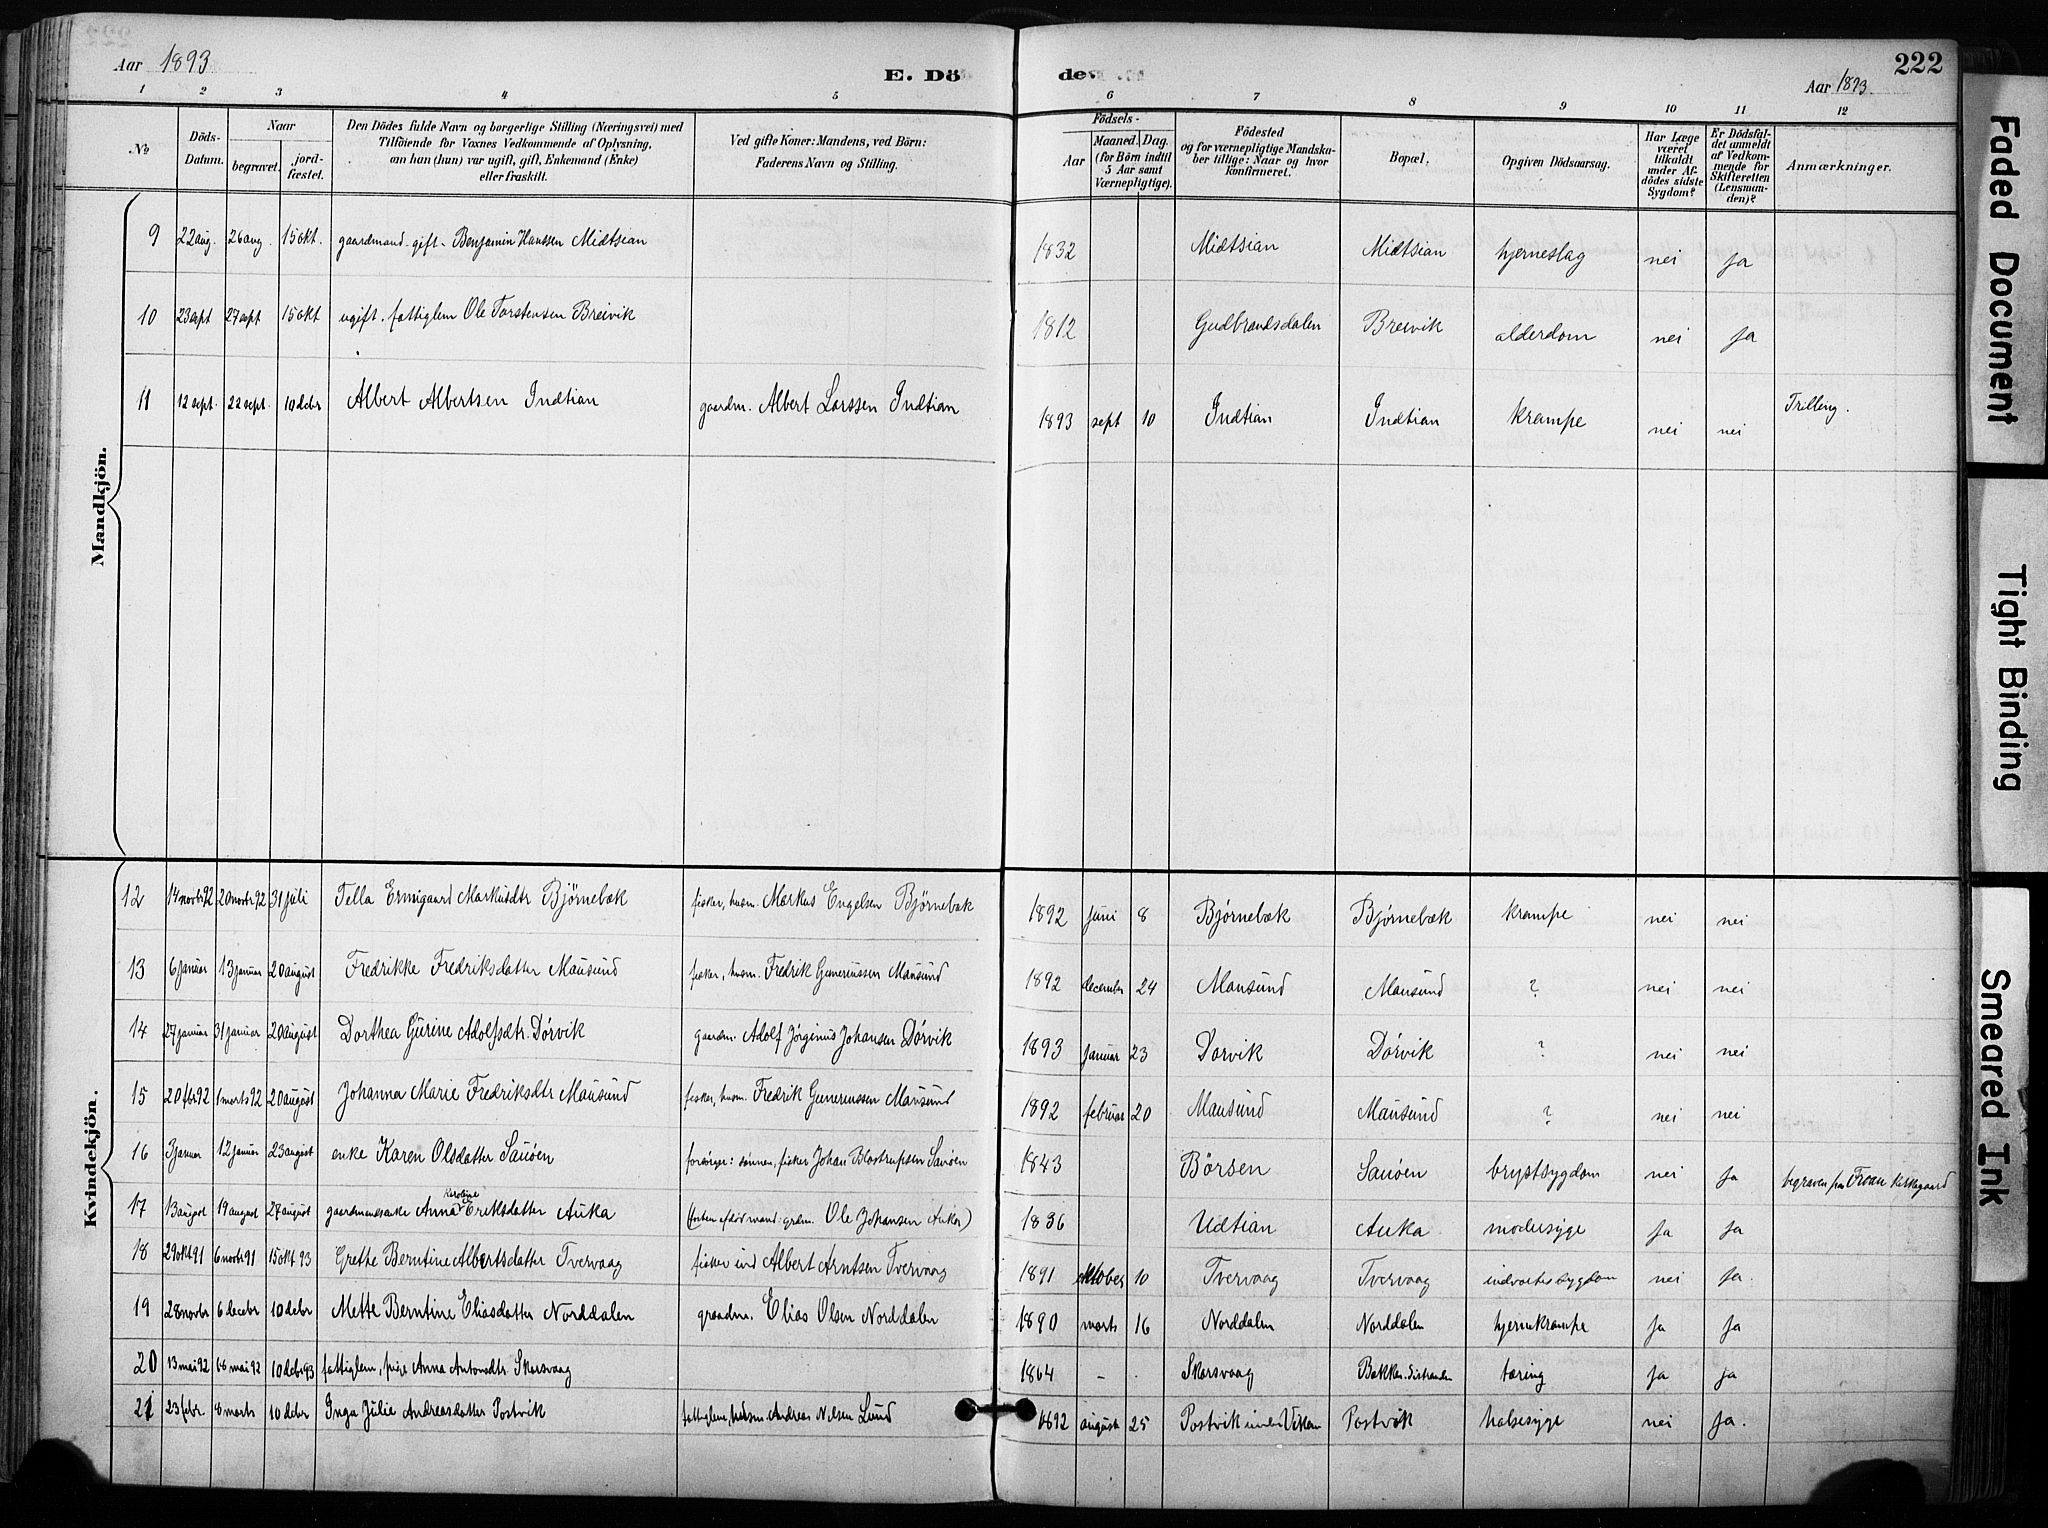 Aar 1893 E. Döde. Aar 1893 222
1 2 3 4 5 6 7 8 9 10 11 12
No
Döds-Datum.
Naar
begravet.
jord-fæstet.
Den Dödes fulde Navn og borgerlige Stilling (Næringsvei) med
Tilföiende for Voxnes Vedkommende af Oplysning,
om han (hun) var ugift, gift, Enkemand (Enke)
eller fraskilt.
Ved gifte Koner: Mandens, ved Börn:
Faderens Navn og Stilling.
Födsels-
Aar
Maaned. Dag.
(for Börn indtil
5 Aar samt
Værnepligtige).
Födested
og for værnepligtige Mandska-
ber tillige: Naar og hvor
konfirmeret.
Bopæl.
Opgiven Dödsaarsag.
Har Læge
været
tilkaldt
under Af-
dödes sidste
Sygdom?
Er Dödsfal-
det anmeldt
af Vedkom-
mende for
Skifteretten
(Lensman-
den)?
Anmærkninger.
Mandkjön.
9 22 aug. 26 aug. 15 okt. gaardmand - gift - Benjamin Hanssen Midtsian 1832 Midtsian Midtsian hjerneslag nei ja
10 23 sept 27 sept 15 okt ugift. fattiglem Ole Torstensen Breivik 1812 Gudbrandsdalen Breivik alderdom nei ja
11 12 sept. 22 sept. 10 debr Albert Albertsen Indtian gaardm. Albert Larssen Indtian 1893 sept 10 Indtian Indtian krampe nei nei Trilling.
Kvindekjön.
12 14 novbr 92 20 novbr 92 31 juli Tella Ermigaard Markusdtr Bjørnebæk fisker, husm. Markus Engelsen Bjørnebæk 1892 juni 8 Bjørnebæk Bjørnebæk krampe nei nei
13 6 januar 13 januar 20 august Fredrikke Fredriksdatter Mausund fisker, husm. Fredrik Gunerussen Mausund 1892 december 24 Mausund Mausund ? nei nei
14 27 januar 31 januar 20 august Dorthea Gurine Adolfsdtr. Dørvik gaardm. Adolf Jørginus Johansen Dørvik 1893 januar 23 Dørvik Dørvik ? nei nei
15 20 fbr 92 1 marts 92 20 august Johanna Marie Fredriksdtr Mausund fisker, husm. Fredrik Gunerussen Mausund 1892 februar 20 Mausund Mausund ? nei nei
16 3 januar 12 januar 23 august enke Karen Olsdatter Sauøen forsørger: sønnen, fisker Johan Sauøen 1843 Børsen Sauøen brystsygdom nei ja begraven paa Froan kirkegaard
17 13 august 19 august 27 august gaardmandsenke Anna Karoline Eriksdatter Auka (forhen afdød mand: grdm. Ole Johansen Auka) 1836 Udtian Auka modersyge ja ja
18 29 okt 91 6 novbr 91 15 okt 93 Grethe Berntine Albertsdatter Tvervaag fisker ind Albert Arntsen Tvervaag 1891 oktober 10 Tvervaag Tvervaag indvortes sygdom nei ja.
19 28 novbr 6 decbr 10 debr Mette Berntine Eliasdatter Norddalen graadm. Elias Olsen Norddalen 1890 marts 16 Norddalen Norddalen hjernekrampe ja ja
20 13 mai 92 mai 92 10 debr 93 fattiglem, pige Anna Antonsdtr Skarsvaag 1864 - . Skarsvaag Bakken, Sistranden tæring ja ja
21 23 febr. 8 marts 10 debr Inga Julie Andreasdatter Postvik fattiglem, husm. Andreas Nilsen Lund 1892 august 25 Postvik under Vikan Postvik halsesyge nei ja.
Faded Document
Tight Binding
Smeared Ink